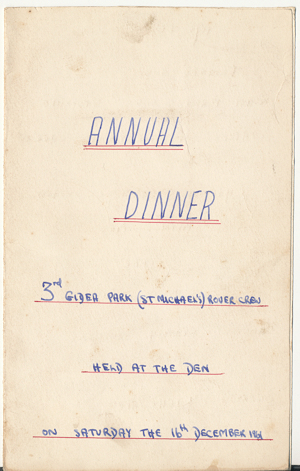 ANNUAL
DINNER
3rd GIDEA PARK (ST MICHAEL'S) ROVER CREW
HELD AT THE DEN
ON SATURDAY THE 16th DECEMBER 1961